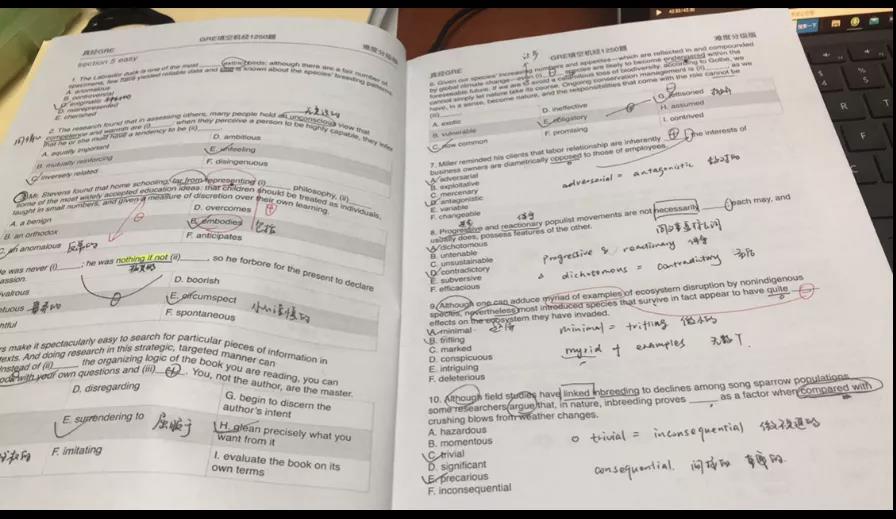 真经GRE
GRE填空机经1250题
难度分级版
section 5 easy
1. The Labrador duck is one of the most ______ extinct birds: although there are a fair number of
specimens, few have yielded reliable data and little is known about the species' breeding patterns.
A. anomalous
B. controversial
C. enigmatic
D. misrepresented
E. cherished
2. The research found that in assessing others, many people hold an unconscious view that
competence and warmth are (i)______ when they perceive a person to be highly capable, they infer
that he or she must have a tendency to be (ii)______
A. equally important
D. ambitious
B. mutually reinforcing
E. unfeeling
C. inversely related
F. disingenuous
Mr. Stevens found that home schooling, far from representing (i)______ philosophy, (ii)______
some of the most widely accepted education ideas: that children should be treated as individuals,
taught in small numbers, and given a measure of discretion over their own learning.
A. a benign
D. overcomes
B. an orthodox
E. embodies
包括
C. an anomalous
反常的
F. anticipates
he was never (i)______; he was nothing if not (ii)______, so he forbore for the present to declare
passion.
D. boorish
E. circumspect
小心谨慎的
F. spontaneous
rs make it spectacularly easy to search for particular pieces of information in
texts. And doing research in this strategic, targeted manner can
Instead of (ii)______ the organizing logic of the book you are reading, you can
with your own questions and (iii)______. You, not the author, are the master.
D. disregarding
G. begin to discern the
author's intent
E. surrendering to
屈服于
H. glean precisely what you
want from it
F. imitating
I. evaluate the book on its
own terms
真经GRE
GRE填空机经1250题
难度分级版
6. Given our species' increasing numbers and appetites—which are reflected in and compounded
by global climate change—even (i)______ species are likely to become endangered within the
foreseeable future. If we are to avoid a calamitous loss of biodiversity, according to Golbe, we
cannot simply let nature take its course. Ongoing conservation management is (ii)______ as we
have, in a sense, become nature, and the responsibilities that come with the role cannot be
(iii)______
A. exotic
D. ineffective
B. vulnerable
E. obligatory
H. assumed
C. now common
F. promising
I. contrived
7. Miller reminded his clients that labor relationship are inherently ______: the interests of
business owners are diametrically opposed to those of employees.
A. adversarial
B. exploitative
C. mercenary
D. antagonistic
E. variable
F. changeable
adversarial = antagonistic 敌对的
8. Progressive and reactionary populist movements are not necessarily ______: each may, and
usually does, possess features of the other.
A. dichotomous
B. untenable
C. unsustainable
D. contradictory
E. subversive
F. efficacious
progressive & reactionary
dichotomous = contradictory 矛盾
9. Although one can adduce myriad of examples of ecosystem disruption by nonindigenous
species, nevertheless most introduced species that survive in fact appear to have quite ______
effects on the ecosystem they have invaded.
A. minimal
B. trifling
C. marked
D. conspicuous
E. intriguing
F. deleterious
minimal = trifling 微小的
myrid of examples 无数个
10. Although field studies have linked inbreeding to declines among song sparrow populations,
some researchers argue that, in nature, inbreeding proves ______ as a factor when compared with
crushing blows from weather changes.
A. hazardous
B. momentous
C. trivial
D. significant
E. precarious
F. inconsequential
trivial = inconsequential 微不足道的
consequential. 间接的 重要的